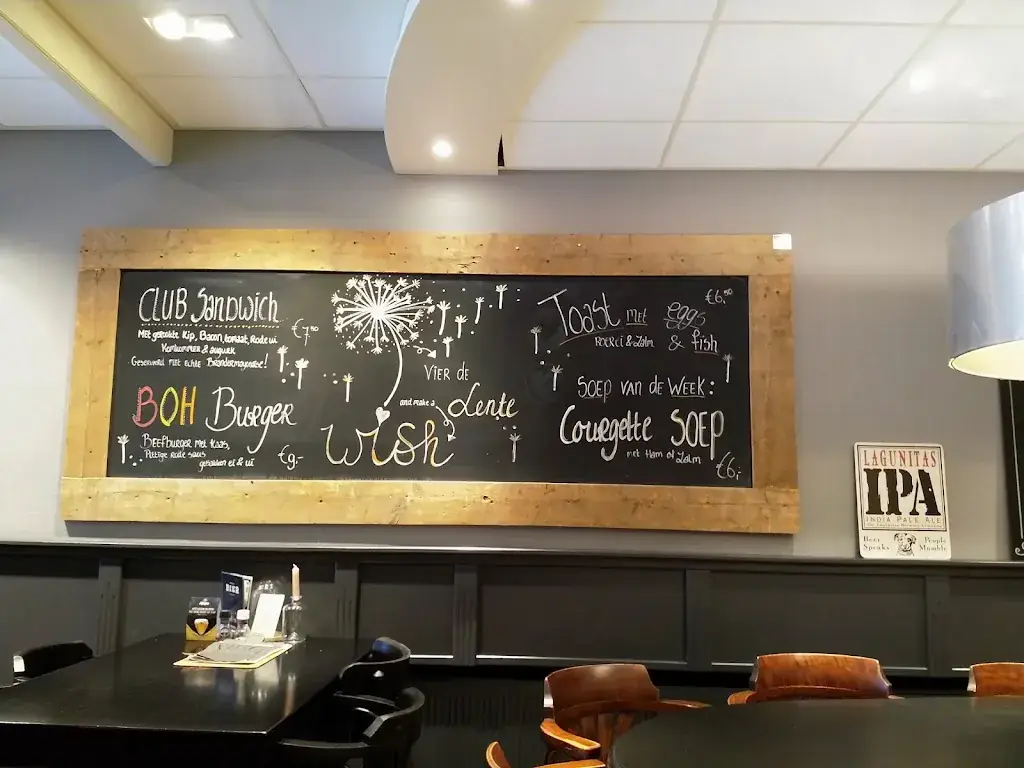 CLUB Sandwich
€7,50
Met gerookte Kip, Bacon, tomaat, Rode ui
Komkommer & augurk
Geserveerd met echte Brandermayonaise!
BOH Burger
BEEFburger met Kaas,
Pittige rode saus
gebakken ei & ui
€9,-
VIER de
Lente
and make a
Wish
Toast met eggs & fish
€6,50
Roerei & Zalm
SOEP van de WEEK:
Courgette SOEP
met Ham of Zalm
€6,-
BIER
LAGUNITAS
IPA
INDIA PALE ALE
Beer Speaks
People Mumble